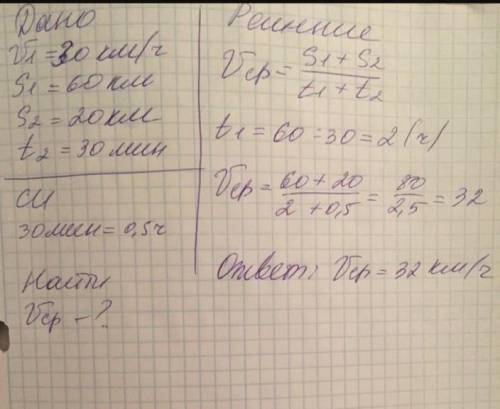 Дано
V1 = 30 км/ч
S1 = 60 км
S2 = 20 км
t2 = 30 мин
СИ
30 мин = 0,5 ч
Найти
Vср - ?
Решение
Vср = (S1 + S2) / (t1 + t2)
t1 = 60 : 30 = 2 (ч)
Vср = (60 + 20) / (2 + 0,5) = 80 / 2,5 = 32
Ответ: Vср = 32 км/ч